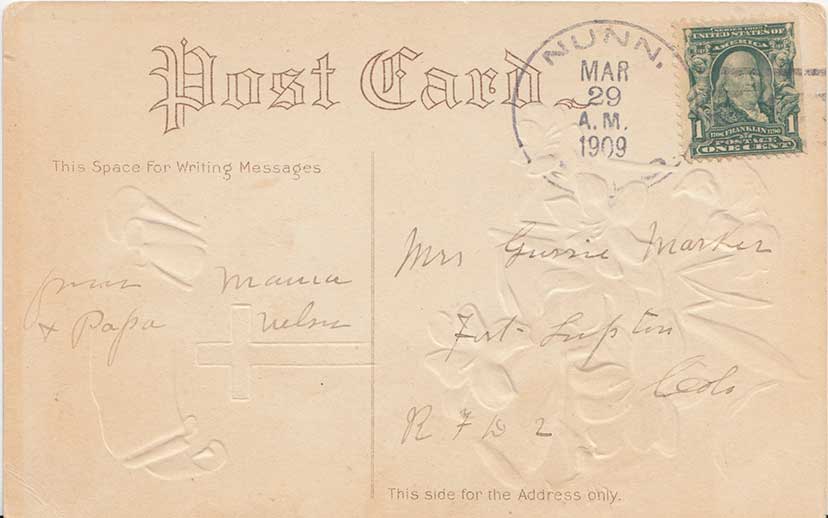 Post Card
NUNN,
MAR
29
A.M.
1909
SERIES 1902
UNITED STATES OF
AMERICA
1706 FRANKLIN 1790
1 1
POSTAGE
ONE CENT
This Space For Writing Messages
from Mama
+ Papa Nelson
Mrs Gussie Marker
Fort Lupton
Colo
R F D 2
This side for the Address only.